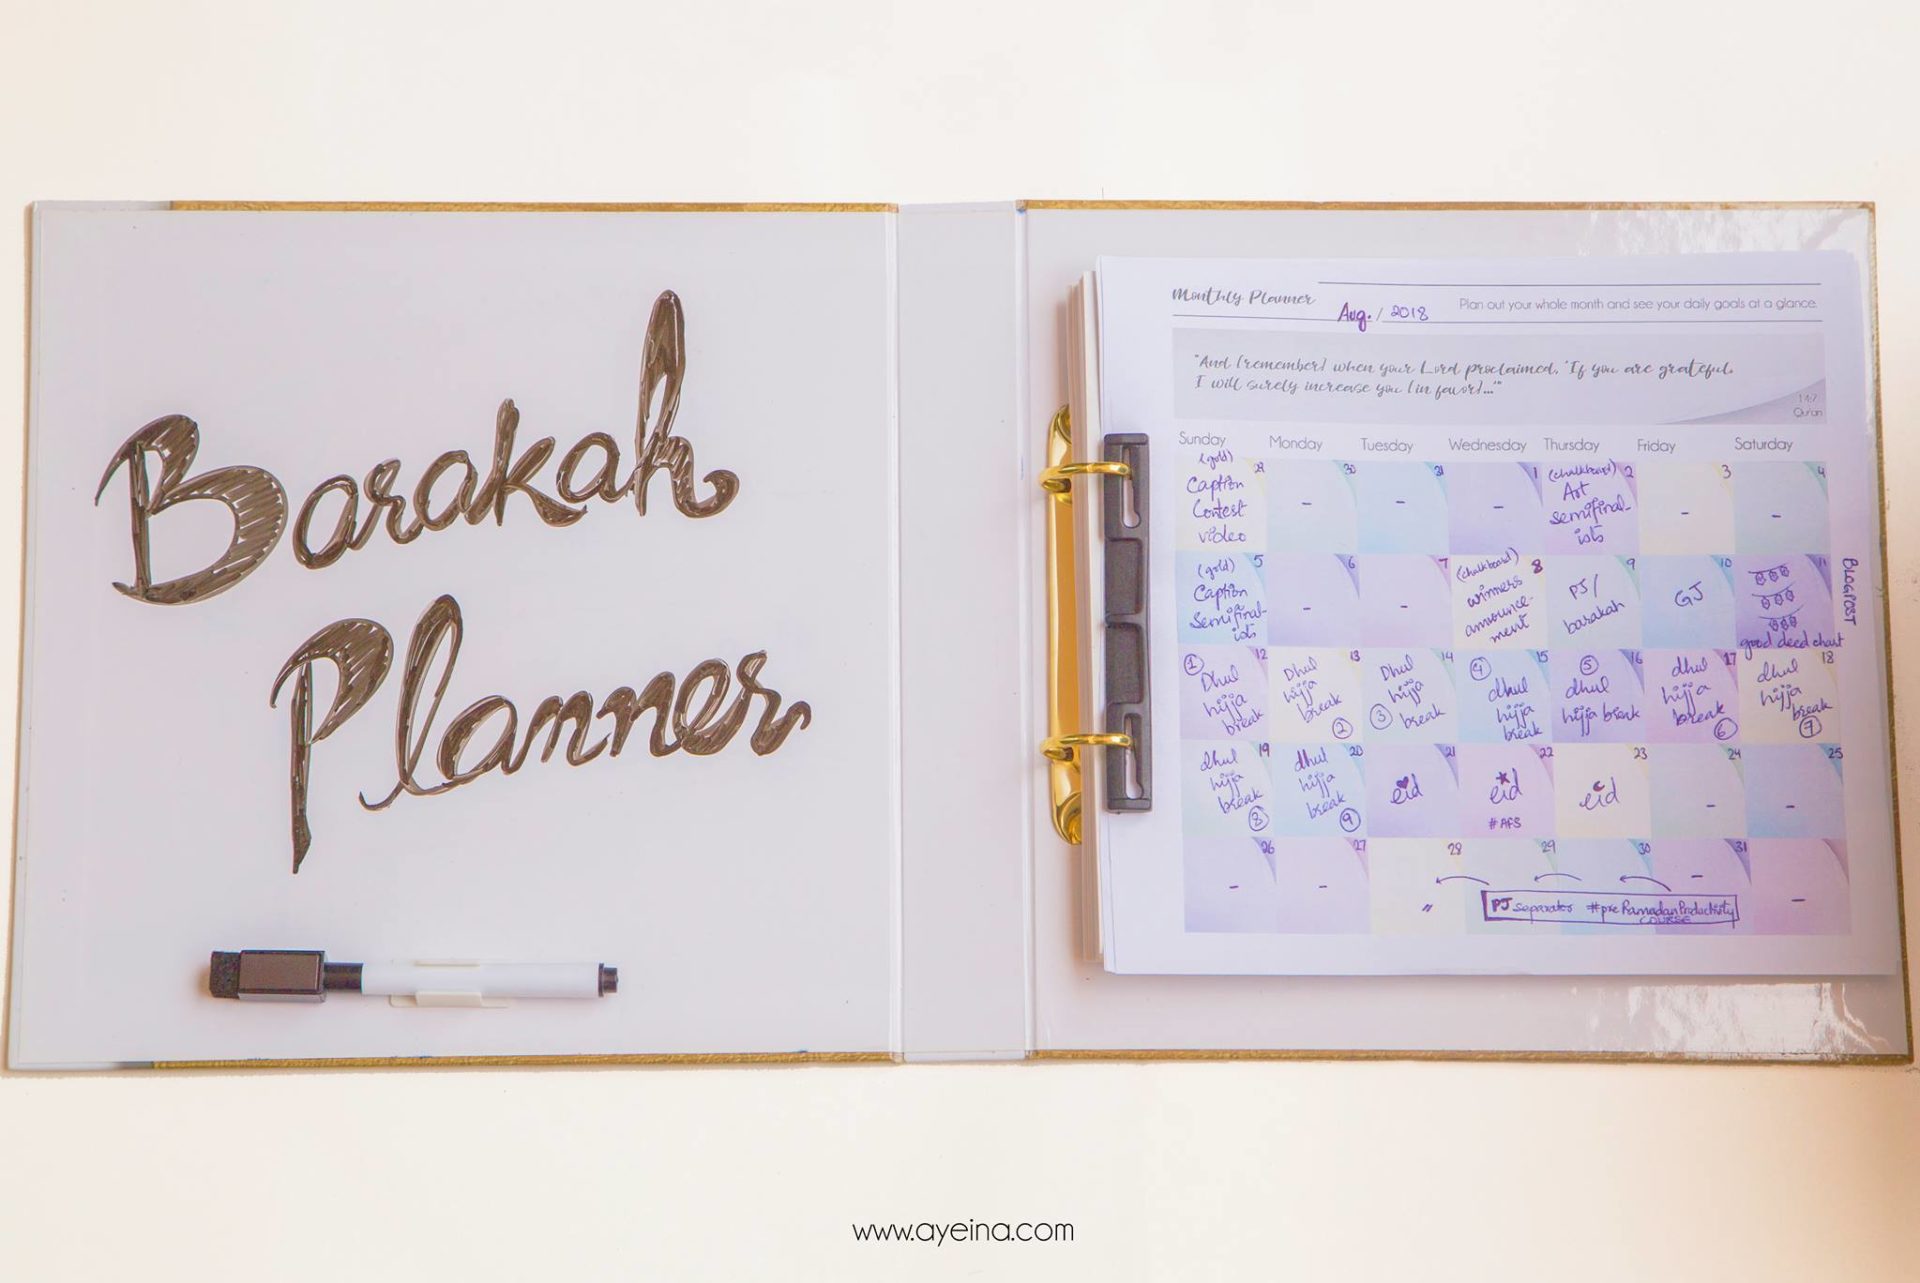 Barakah
Planner
Monthly Planner
Aug. / 2018
Plan out your whole month and see your daily goals at a glance.
"And [remember] when your Lord proclaimed, 'If you are grateful,
I will surely increase you [in favor]...'"
14:7
Qur'an
Sunday Monday Tuesday Wednesday Thursday Friday Saturday
29
(gold)
Caption
Contest
video
30
-
31
-
1
-
2
(chalkboard)
Art
semifinal-
ists
3
-
4
-
5
(gold)
Caption
Semifinal-
ists
6
-
7
-
8
(chalkboard)
winners
announce-
ment
9
PJ/
barakah
10
GJ
11
good deed chart
BLOGPOST
12
1
Dhul
hijja
break
13
Dhul
hijja
break
2
14
Dhul
hijja
3 break
15
4
dhul
hijja
break
16
5
dhul
hijja break
17
dhul
hijja
break
6
18
dhul
hijja
break
7
19
dhul
hijja
break
8
20
dhul
hijja
break
9
21
eid
22
eid
#AFS
23
eid
24
-
25
-
26
-
27
-
28
"
29
30
31
-
-
PJ separator #preRamadanProductivity
COURSE
www.ayeina.com